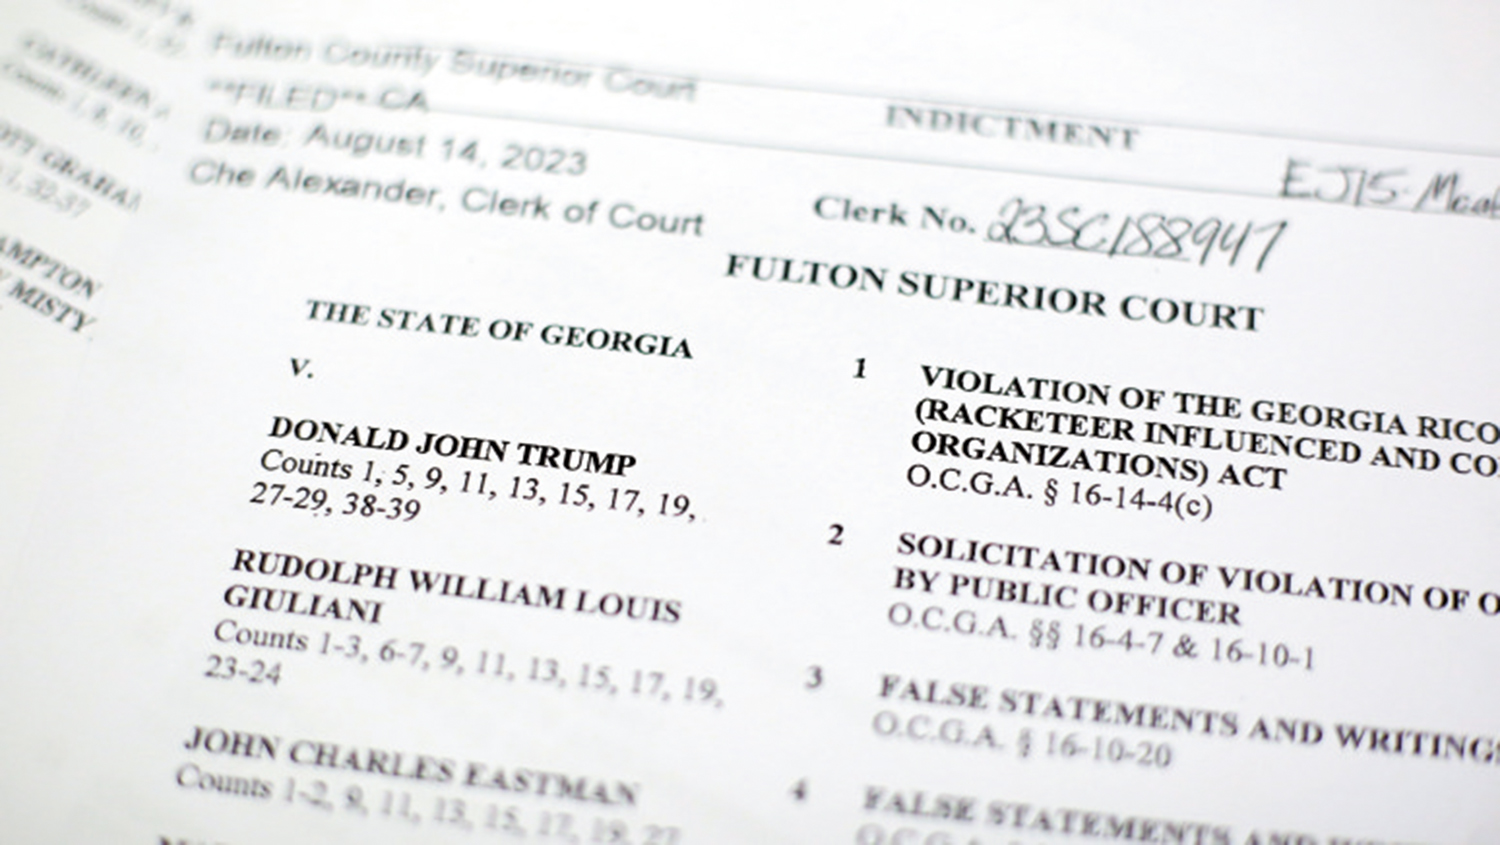 Counts 1, 8, 10,
GRAHAM
1, 32-37
AMPTON
MISTY
Fulton County Superior Court
**FILED** CA
Date: August 14, 2023
Che Alexander, Clerk of Court
INDICTMENT
EJIS
Clerk No. 23SC188947
FULTON SUPERIOR COURT
THE STATE OF GEORGIA
v.
DONALD JOHN TRUMP
Counts 1, 5, 9, 11, 13, 15, 17, 19,
27-29, 38-39
RUDOLPH WILLIAM LOUIS
GIULIANI
Counts 1-3, 6-7, 9, 11, 13, 15, 17, 19,
23-24
JOHN CHARLES EASTMAN
Counts 1-2, 9, 11, 13, 15, 17, 19, 27
1 VIOLATION OF THE GEORGIA RICO
(RACKETEER INFLUENCED AND CO
ORGANIZATIONS) ACT
O.C.G.A. § 16-14-4(c)
2 SOLICITATION OF VIOLATION OF O
BY PUBLIC OFFICER
O.C.G.A. §§ 16-4-7 & 16-10-1
3 FALSE STATEMENTS AND WRITINGS
O.C.G.A. § 16-10-20
4 FALSE STATEMENTS AND
O.C.G.A.